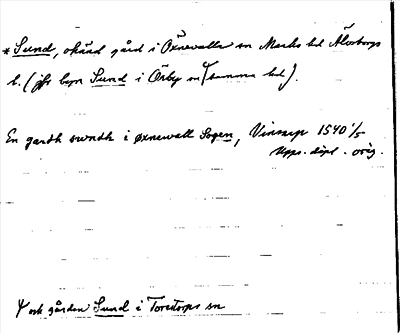 * Sund, okänd gård i Öxnevalla sn Marks hd Älvsborgs
l. (jfr byn Sund i Örby sn Ɣ samma hd).
En gardh swndh i øxnewall Sogen, Vinsarp 1540 1/5
Upps. dipl. orig.
Ɣ och gården Sund i Torestorps sn